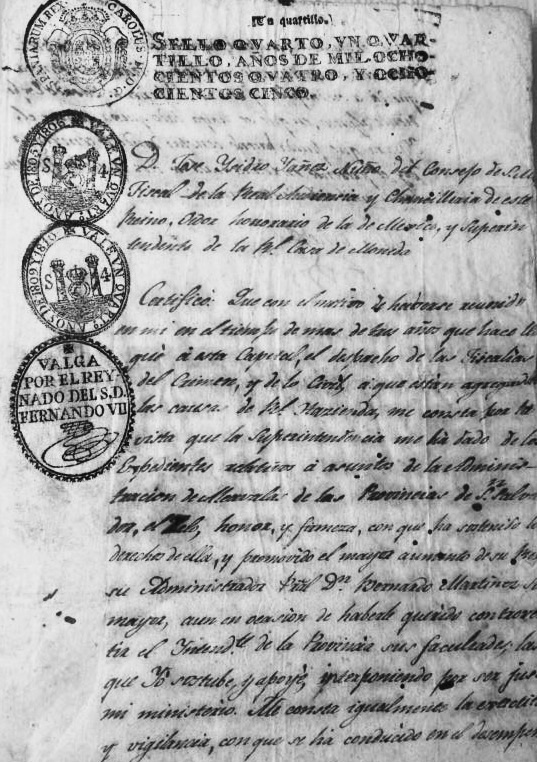 CAROLUS IV D G HISPANIARUM REX
[Un quartillo.]
SELLO QVARTO, VN QVAR-
TILLO, AÑOS DE MIL OCHO-
CIENTOS QVATRO, Y OCHO-
CIENTOS CINCO.
VALE VN QVART.º AÑOS DE 1807 Y 1808
S 4
VALE VN QVART.º AÑOS DE 1809 Y 1810
S 4
VALGA
POR EL REY-
NADO DEL S.D.
FERNANDO VII
D. Jose Ysidro Yañez Nuño del Consejo de S.M.
Fiscal de la Real Audiencia y Chancilleria de este
Reino, Oidor honorario de la de Mexico, y Superin
tendente de la Rl. Casa de Moneda
Certifico: Que con el motivo de haberse reunido
en mi en el tiempo de mas de tres años que hace lle
gué à esta Capital, el despacho de las Fiscalias
del Crimen, y de lo Civil, a que están agregadas
las causas de Rl. Hazienda, me consta por la
vista que la Superintendencia me ha dado de los
Expedientes relativos à asuntos de la Adminis-
tracion de Alcavalas de las Provincias de Sn. Salva
dor, el Zelo, honor, y firmeza, con que ha sostenido los
derechos de ella, y promovido el mayor aumento de su
su Administrador Dn. Bernardo Martinez
mayor, aun en ocasion de haberle querido controver
tir el Intendte. de la Provincia sus facultades, las
que Yo sostube, y apoyé, interponiendo por ser justo
mi ministerio. Me consta igualmente la exactitud
y vigilancia, con que se ha conducido en el desempeño